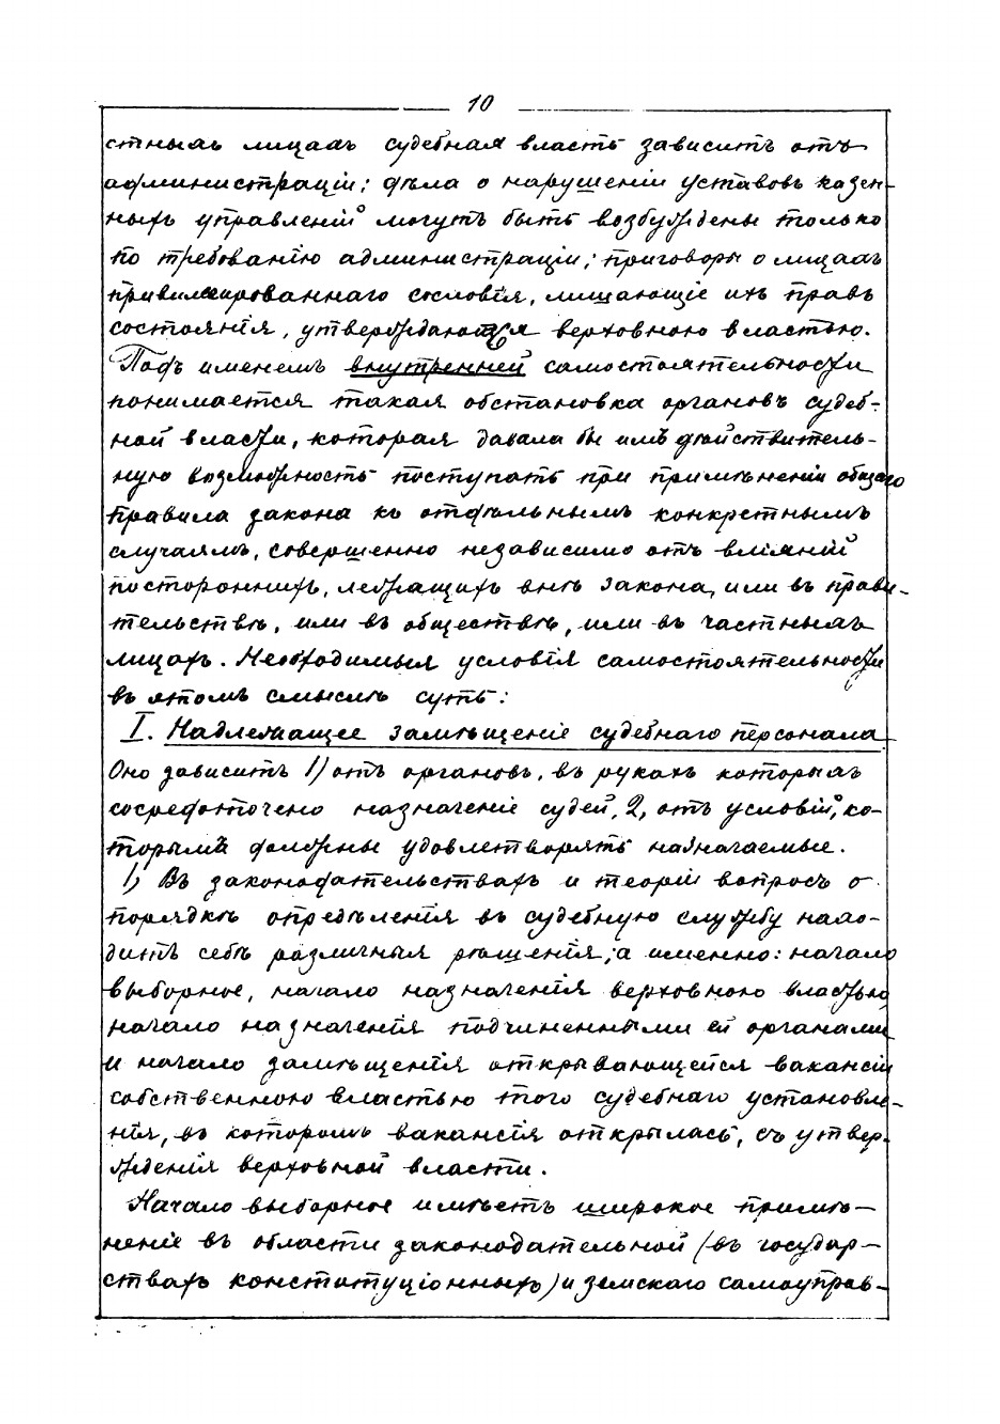 10
стныхъ лицахъ судебная власть зависитъ отъ
администраціи; дѣла о нарушеніи уставовъ казен-
ныхъ управленій могутъ быть возбуждены только
по требованію администраціи; приговоры о лицахъ
привилегированнаго сословія, лишающіе ихъ правъ
состоянія, утверждаются верховною властью.
Подъ именемъ внутренней самостоятельности
понимается такая обстановка органовъ судеб-
ной власти, которая давала бы имъ дѣйствитель-
ную возможность поступать при примѣненіи общаго
правила закона къ отдѣльнымъ конкретнымъ
случаямъ, совершенно независимо отъ вліяній
постороннихъ, лежащихъ внѣ закона, или въ прави-
тельствѣ, или въ обществѣ, или въ частныхъ
лицахъ. Необходимыя условія самостоятельности
въ этомъ смыслѣ суть:
I. Надлежащее замѣщеніе судебнаго персонала
Оно зависитъ 1) отъ органовъ, въ рукахъ которыхъ
сосредоточено назначеніе судей, 2, отъ условій, ко-
торымъ должны удовлетворять назначаемые.
1) Въ законодательствахъ и теоріи вопросъ о
порядкѣ опредѣленія въ судебную службу нахо-
дитъ себѣ различныя рѣшенія; а именно: начало
выборное, начало назначенія верховною властью,
начало назначенія подчиненными ей органами
и начало замѣщенія открывающейся вакансіи
собственною властью того судебнаго установле-
нія, въ которомъ вакансія открылась, съ утвер-
жденія верховной власти.
Начало выборное имѣетъ широкое примѣ-
неніе въ области законодательной (въ государ-
ствахъ конституціонныхъ) и земскаго самоуправ-